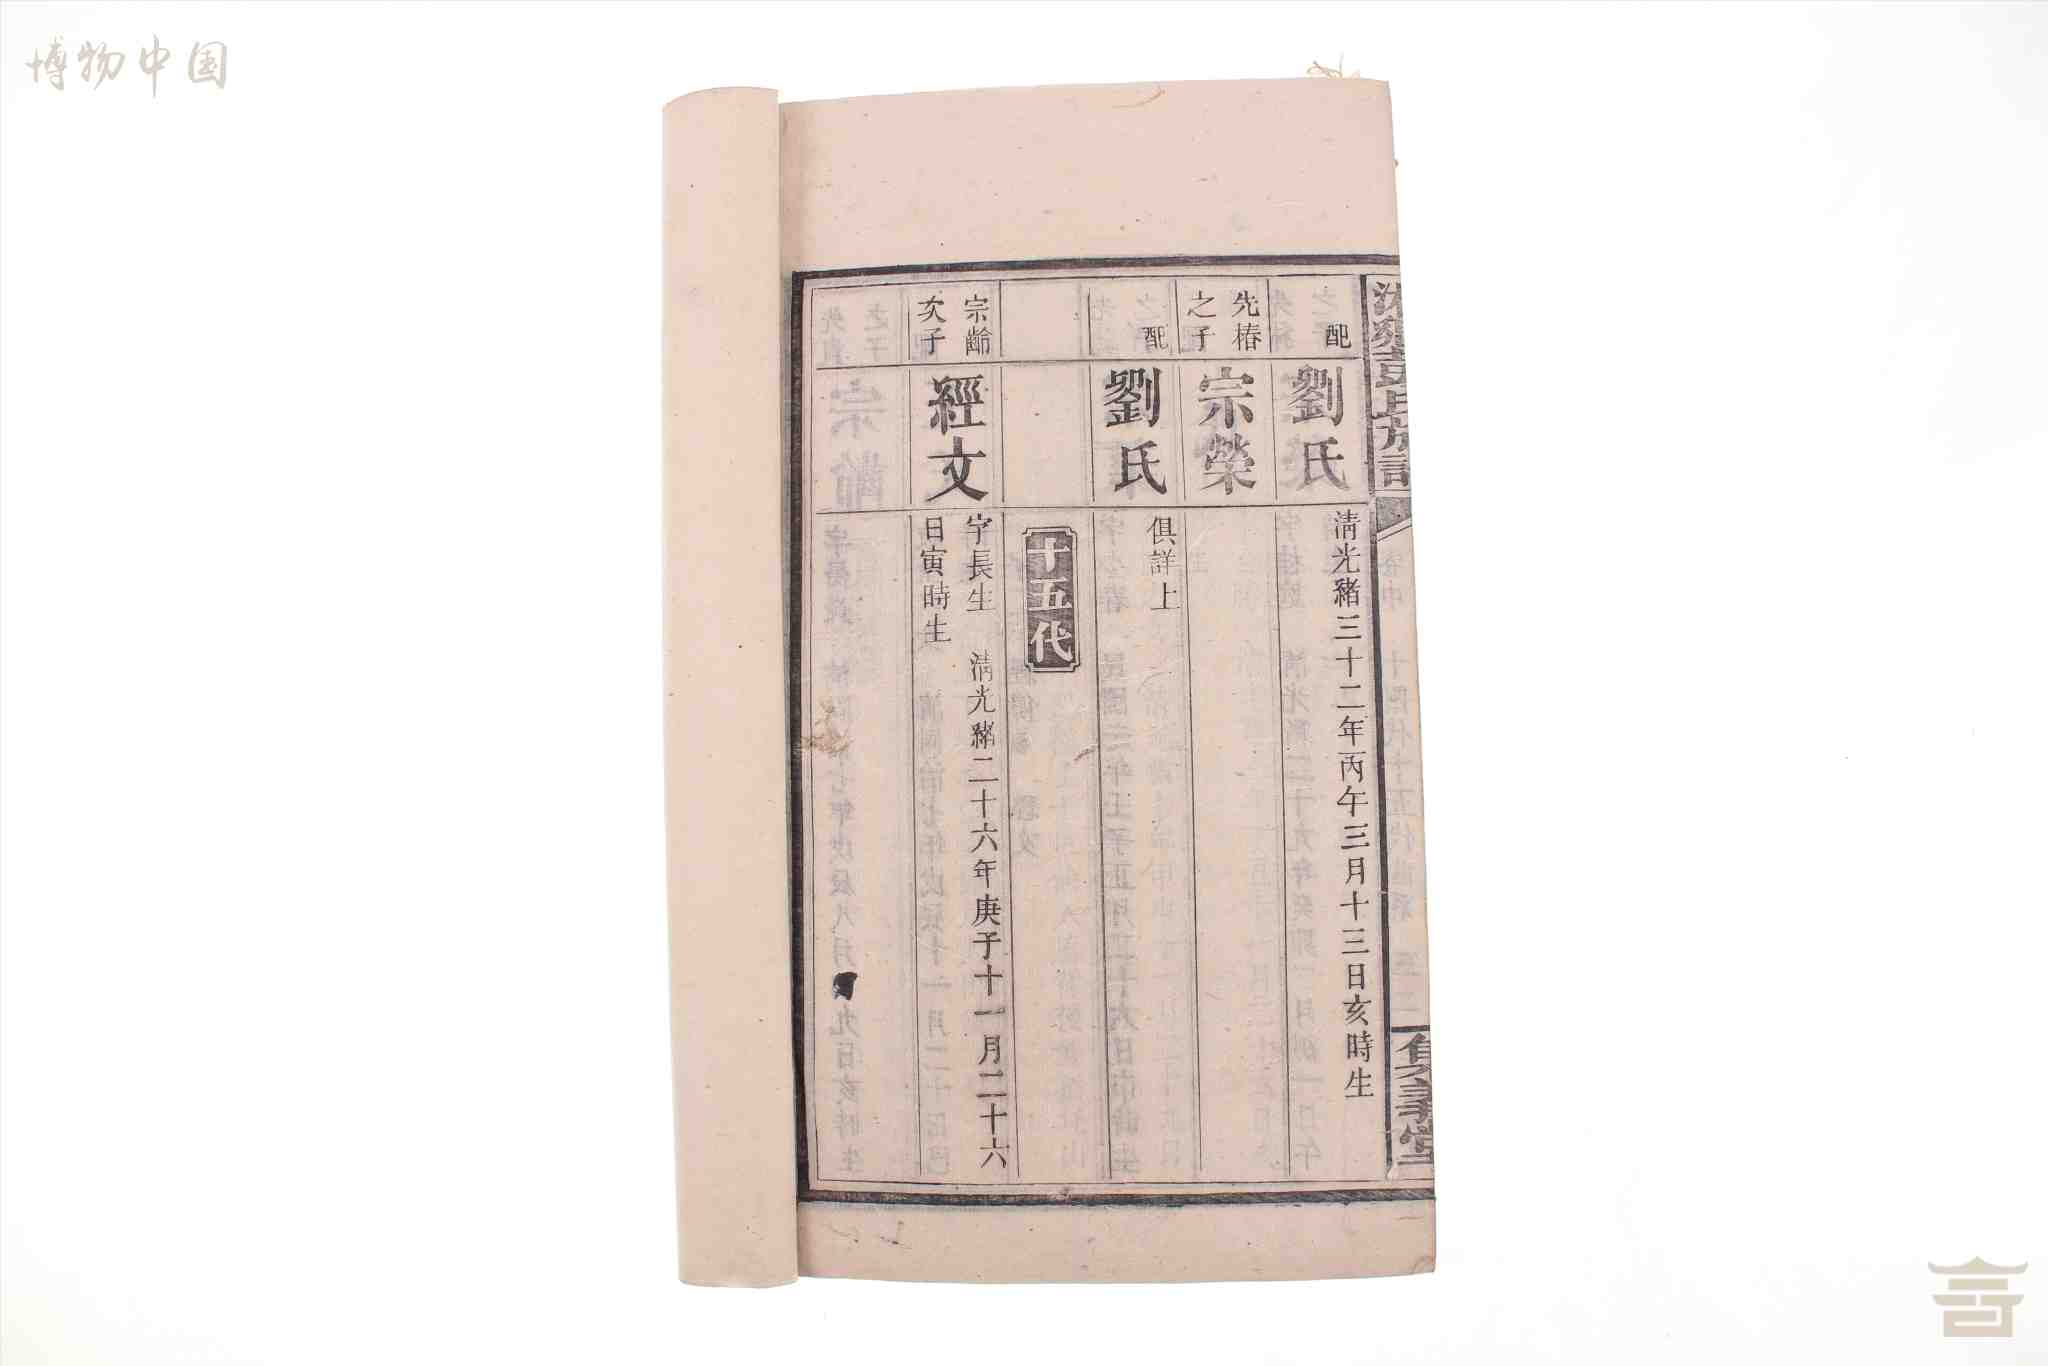 博物中国
配
劉氏
清光緒三十二年丙午三月十三日亥時生
先椿
之子
宗榮
配
劉氏
俱詳上
十五代
宗齡
次子
經文
字長生 清光緒二十六年庚子十一月二十六
日寅時生
氏族譜
義堂